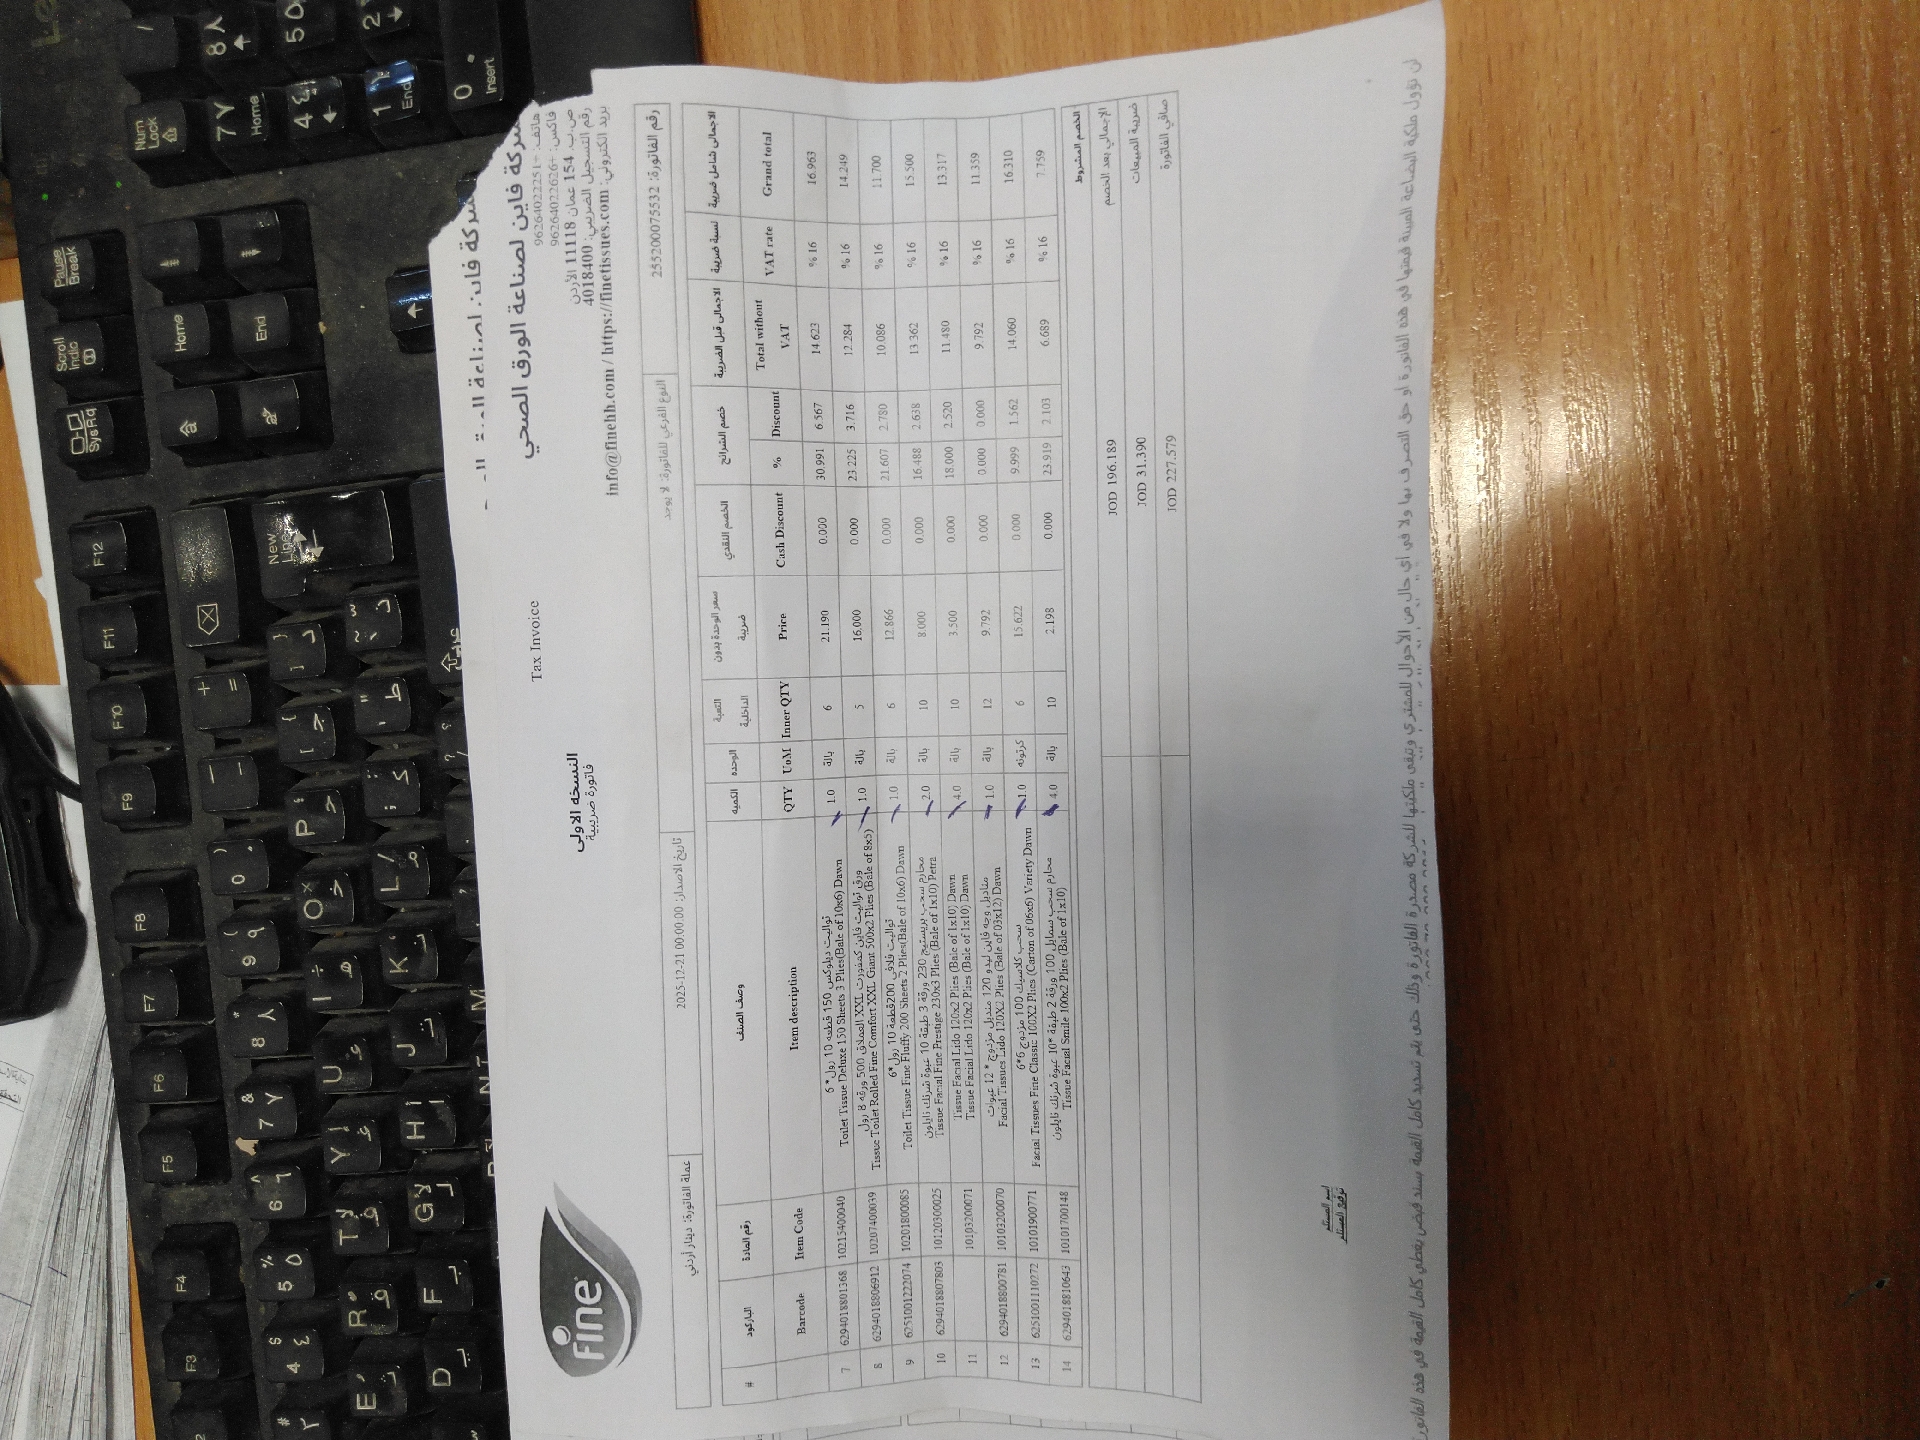 Fine
النسخه الاولى
فاتورة ضريبية
Tax Invoice
شركة فاين لصناعة الورق الصحي
هاتف: +96264022251
فاكس: +96264022626
ص.ب. 154 عمان 11118 الأردن
رقم التسجيل الضريبي: 4018400
بريد الكتروني: info@finehh.com / https://finetissues.com
عملة الفاتورة: دينار أردني
تاريخ الاصدار: 2025-12-21 00:00:00
النوع الفرعي للفاتورة: لا يوجد
رقم الفاتورة: 255200075532
# الباركود رقم المادة وصف الصنف الكميه الوحده التعبة الداخلية سعر الوحدة بدون ضريبة الخصم النقدي خصم الشرائح الاجمالي قبل الضريبة نسبة ضريبة الاجمالي شامل ضريبة
Barcode Item Code Item description QTY UoM Inner QTY Price Cash Discount % Discount Total without VAT VAT rate Grand total
7 6294018801368 10215400040 تواليت ديلوكس 150 قطعه 10 رول* 6
Toilet Tissue Deluxe 150 Sheets 3 Plies(Bale of 10x6) Dawn 1.0 بالة 6 21.190 0.000 30.991 6.567 14.623 % 16 16.963
8 6294018806912 10207400039 ورق تواليت فاين كمفورت XXL العملاق 500 ورقه 8 رول
Tissue Toilet Rolled Fine Comfort XXL Giant 500x2 Plies (Bale of 8x5) 1.0 بالة 5 16.000 0.000 23.225 3.716 12.284 % 16 14.249
9 6251001222074 10201800085 تواليت فلافي 200قطعة 10 رول*6
Toilet Tissue Fine Fluffy 200 Sheets 2 Plies(Bale of 10x6) Dawn 1.0 بالة 6 12.866 0.000 21.607 2.780 10.086 % 16 11.700
10 6294018807803 10120300025 محارم سحب بريستيج 230 ورقة 3 طبقة 10 عبوة شرنك نايلون
Tissue Facial Fine Prestige 230x3 Plies (Bale of 1x10) Petra 2.0 بالة 10 8.000 0.000 16.488 2.638 13.362 % 16 15.500
11 10103200071 Tissue Facial Lido 120x2 Plies (Bale of 1x10) Dawn
Tissue Facial Lido 120x2 Plies (Bale of 1x10) Dawn 4.0 بالة 10 3.500 0.000 18.000 2.520 11.480 % 16 13.317
12 6294018800781 10103200070 مناديل وجه فاين ليدو 120 منديل مزدوج * 12 عبوات
Facial Tissues Lido 120X2 Plies (Bale of 03x12) Dawn 1.0 بالة 12 9.792 0.000 0.000 0.000 9.792 % 16 11.359
13 6251001110272 10101900771 سحب كلاسيك 100 مزدوج 6*6
Facial Tissues Fine Classic 100X2 Plies (Carton of 06x6) Variety Dawn 1.0 كرتونه 6 15.622 0.000 9.999 1.562 14.060 % 16 16.310
14 6294018810643 10101700148 محارم سحب سمايل 100 ورقة 2 طبقة *10 عبوة شرنك نايلون
Tissue Facial Smile 100x2 Plies (Bale of 1x10) 4.0 بالة 10 2.198 0.000 23.919 2.103 6.689 % 16 7.759
الخصم المشروط
JOD 196.189 الإجمالي بعد الخصم
JOD 31.390 ضريبة المبيعات
JOD 227.579 صافي الفاتورة
إسم المستلم
توقيع المستلم
لن تؤول ملكية البضاعة المبينة قيمتها في هذه الفاتورة او حق التصرف بها ولا في أي حال من الأحوال للمشتري وتبقى ملكيتها للشركة مصدرة الفاتورة وذلك حتى يتم تسديد كامل القيمة بسند قبض يغطي كامل القيمة في هذه الفاتورة
Num Lock
7 Home
8
4
5
1 End
2
0 Insert
Pause Break
Scroll
SysRq
Home
End
F12
F11
F10
F9
F8
F7
F6
F5
F4
F3
New Line
P
O
U
Y
T
R
E
L
K
J
H
G
F
D
M
N